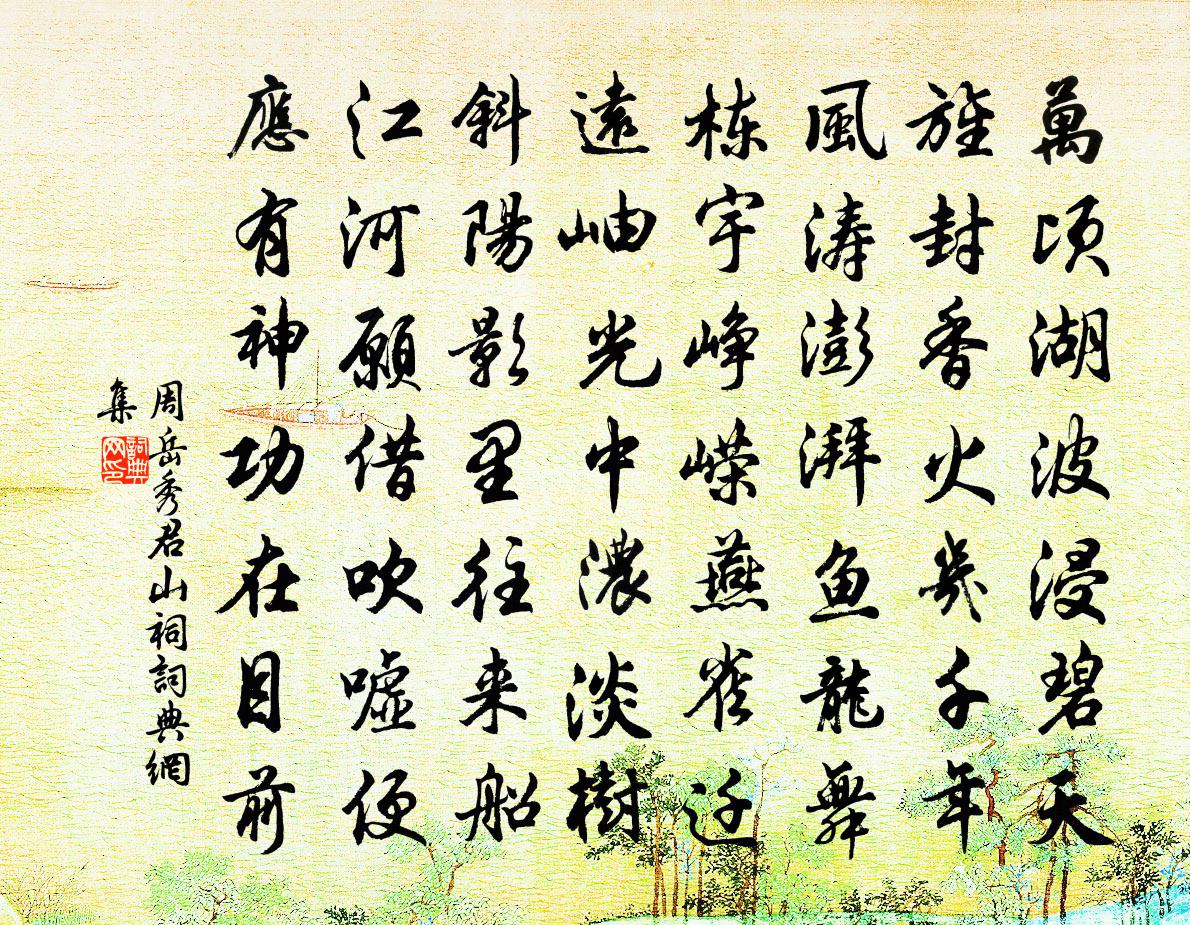 萬頃湖波浸碧天
旌封香火幾千年
風濤澎湃鱼龍舞
棟宇峥嶸燕雀迁
遠岫光中濃淡樹
斜陽影里往来船
江河願借吹嘘便
應有神功在目前
周岳秀君山祠詞典網
集
詞典網印